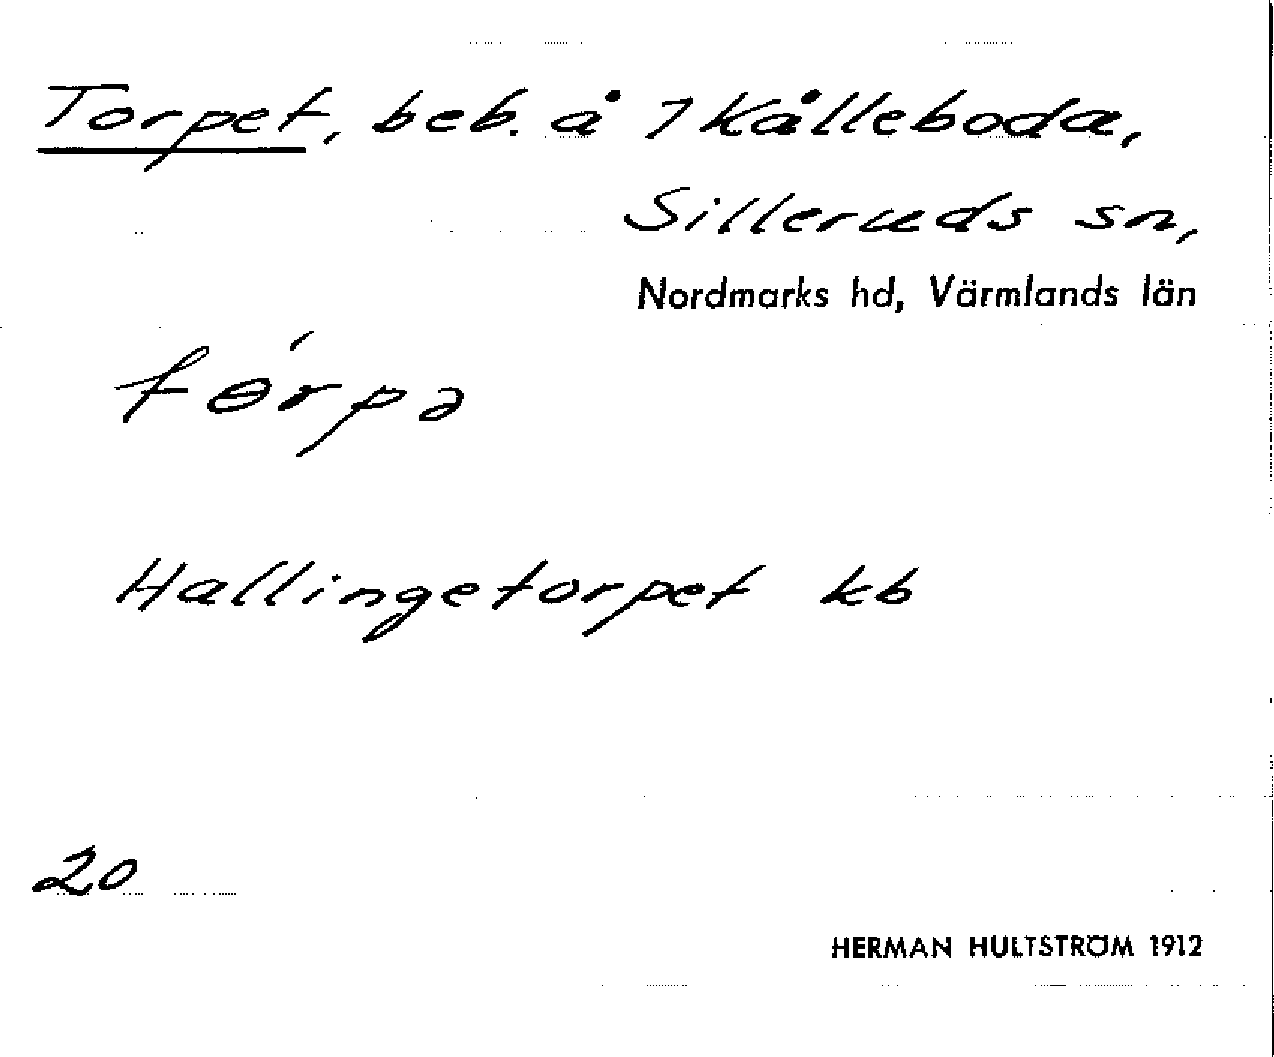 Torpet, beb. å 1 Kålleboda,
Silleruds sn,
Nordmarks hd, Värmlands län
tɵ́rpə
Hallingetorpet kb
20
HERMAN HULTSTRÖM 1912